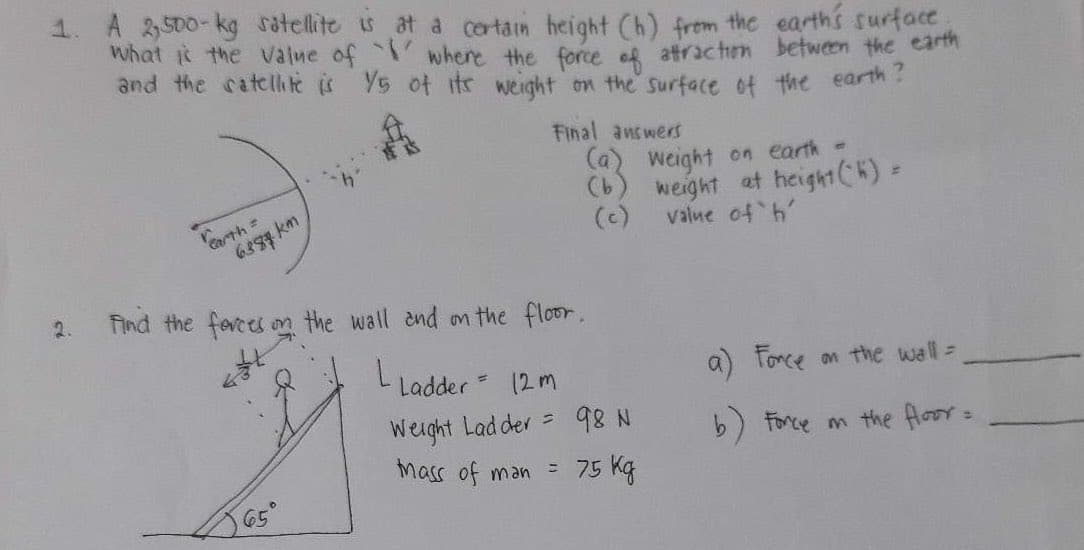 1. A 2,500-kg satellite is at a certain height (h) from the earth's surface.
What is the value of 'h' where the force of attraction between the earth
and the satellite is 1/5 of its weight on the surface of the earth?
Final answers
(a) Weight on earth =
(b) weight at height ('h') =
(c) value of 'h'
'h'
rearth =
km
2. Find the forces on the wall and on the floor.
L Ladder = 12 m
Weight Ladder = 98 N
mass of man = 75 Kg
65°
a) Force on the wall =
b) Force on the floor =